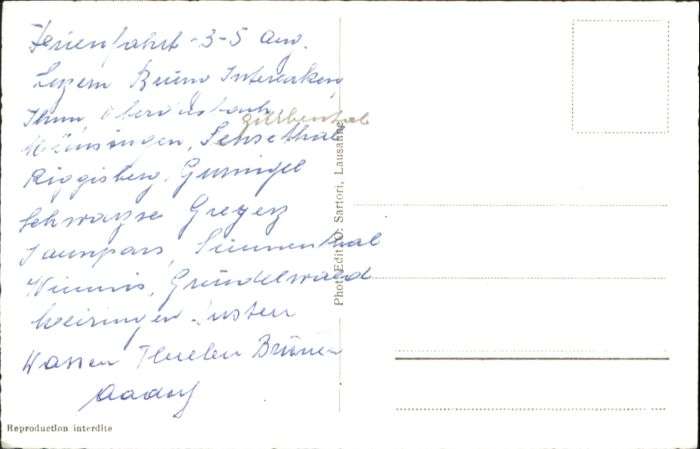 Ferienfahrt - 3-5 Aug.
Luzern Brünn Interarken
Thun, Oberdisbach
gürbental
Münsingen, Sensethal
Riggisberg, Gurnigel
Schwarzse Greyerz
Jaunpass, Simmenthal
Wimmis, Gründelwald
Meiringen Susten
Wassen Fluelen Brünen
Aadorf
Phot. Edit. O. Sartori, Lausanne
Reproduction interdite